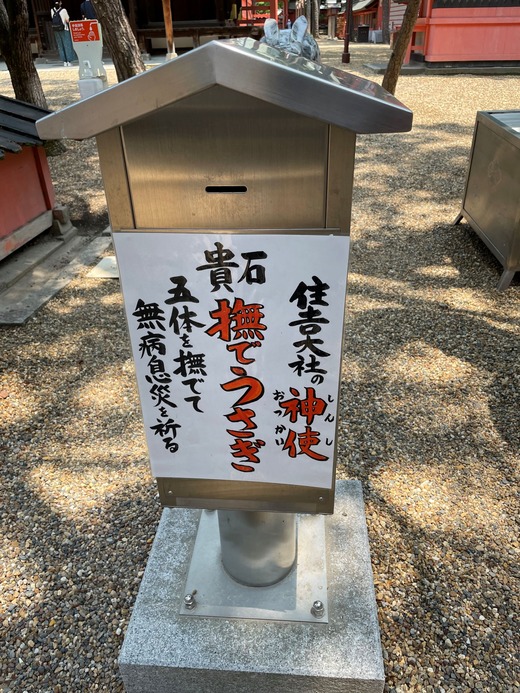 住吉大社の
神使
しんし
おつかい
貴石
撫でうさぎ
五体を撫でて
無病息災を祈る